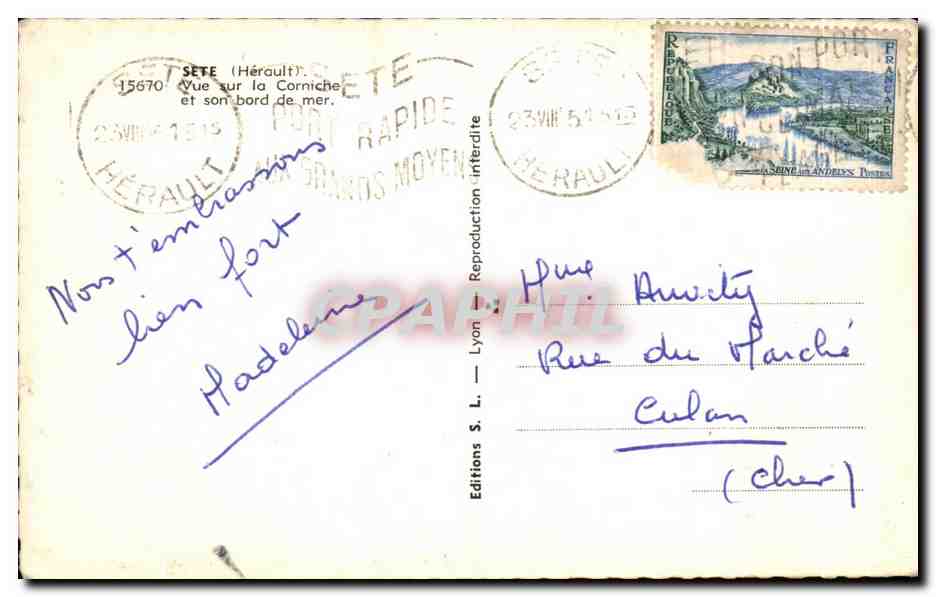 SETE (Hérault).
15670 Vue sur la Corniche
et son bord de mer.
SETE
HÉRAULT
SETE
PORT RAPIDE
AUX GRANDS MOYENS
SETE
HÉRAULT
REPUBLIQUE FRANCAISE
LA SEINE AUX ANDELYS POSTES
Nous t'embrassons
bien fort
Madeleine
Editions S. L. — Lyon — Reproduction interdite
Mme
Rue du Marché
Culan
(Cher)
CPAPHIL